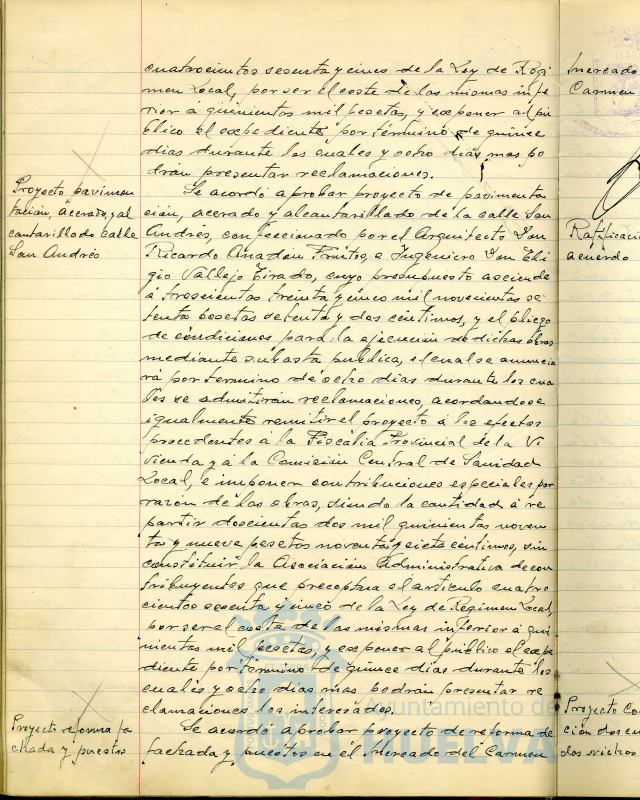 cuatrocientos sesenta y cinco de la Ley de Regi
men Local, por ser el coste de las mismas infe
rior á quinientas mil pesetas, y exponer al pú
blico el expediente por término de quince
dias durante los cuales y ocho dias mas po
dran presentar reclamaciones.
Proyecto pavimen
tación, acerado, y al
cantarillado calle
San Andrés
Se acordó aprobar proyecto de pavimenta
ción, acerado y alcantarillado de la calle San
Andrés, confeccionado por el Arquitecto Don
Ricardo Anadón Frutos, e Ingeniero Don Eli
gio Vallejo Tirado, cuyo presupuesto asciende
á trescientas treinta y cinco mil novecientas se
tenta pesetas setenta y dos céntimos, y el pliego
de condiciones para la ejecución de dichas obras
mediante subasta publica, el cual se anuncia
rá por termino de ocho dias durante los cua
les se admitirán reclamaciones, acordandose
igualmente remitir el proyecto á los efectos
procedentes á la Fiscalia Provincial de la Vi
vienda y á la Comisión Central de Sanidad
Local, é imponer contribuciones especiales por
razón de las obras, siendo la cantidad á re
partir doscientas dos mil quinientas noven
ta y nueve pesetas noventa y siete céntimos, sin
constituir la Asociación Administrativa de con
tribuyentes que preceptua el articulo cuatro
cientos sesenta y cinco de la Ley de Regimen Local,
por ser el coste de las mismas inferior á qui
nientas mil pesetas, y exponer al público el expe
diente por termino de quince dias durante los
cuales y ocho dias mas podrán presentar re
clamaciones los interesados.
Proyecto reforma fa
chada y puestos
Se acordó aprobar proyecto de reforma de
fachada y puestos en el Mercado del Carmen
Mercado
Carmen
Ratificació
acuerdo
Proyecto Con
ción dos en
dos nichos
Ayuntamiento de
HUELVA